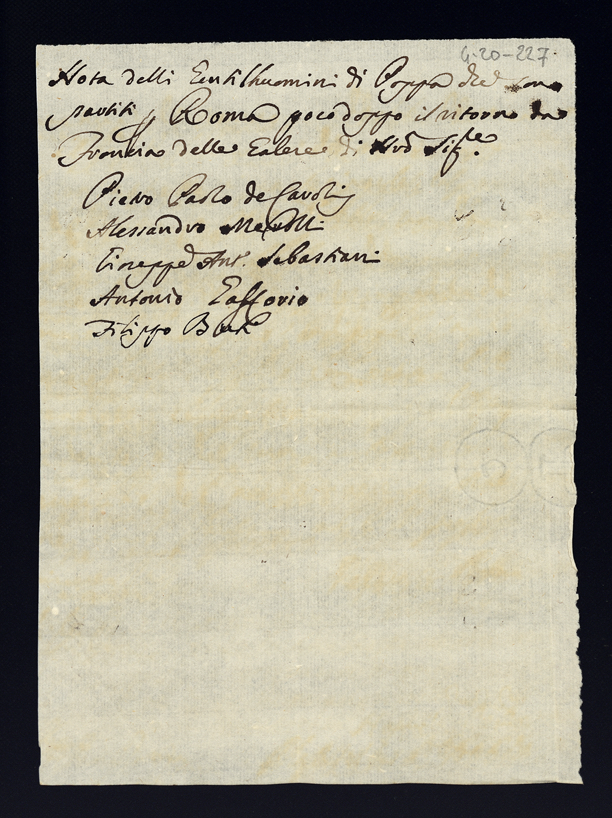 4-20-227.
Nota delli Gentilhuomini di Poppa che sono
partiti p Roma poco doppo il ritorno da
Francia delle Galere di Nrõ Sig.re
Pietro Paolo de Carolis
Alessandro
Gioseppe Ant.o Sebastiani
Antonio
Filippo